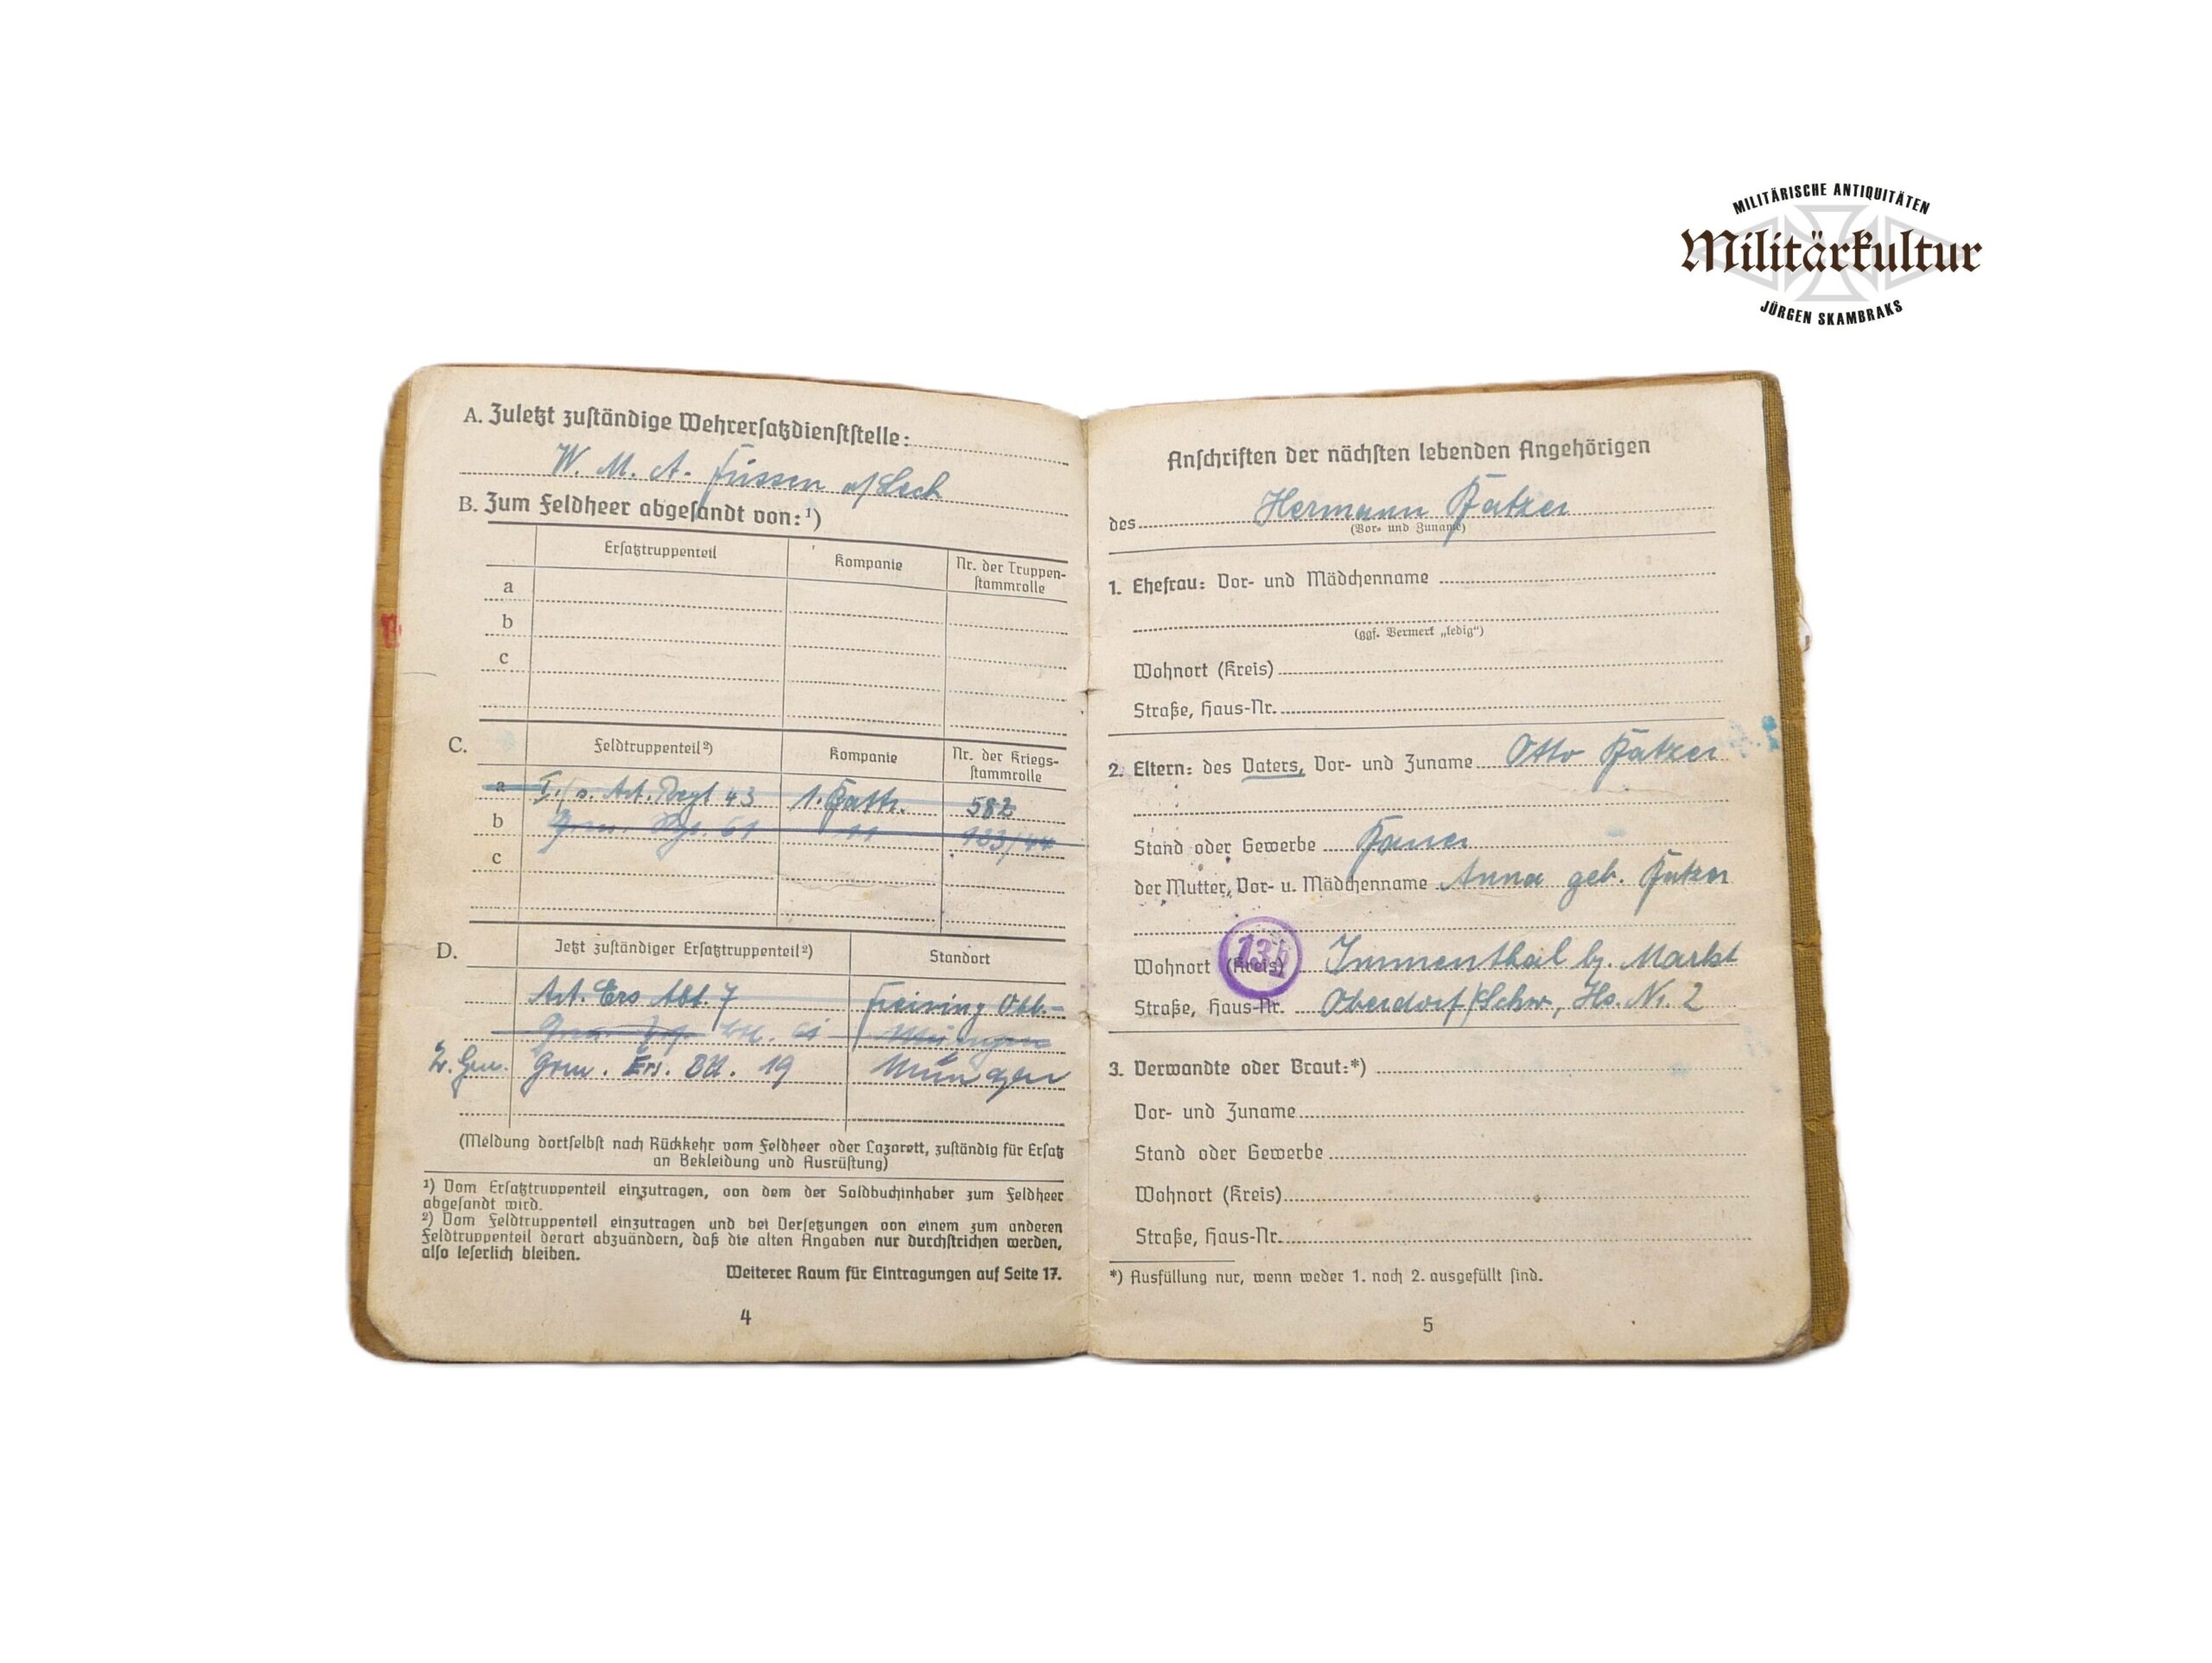 MILITÄRISCHE ANTIQUITÄTEN
Militärkultur
JÜRGEN SKAMBRAKS
A. Zuletzt zuständige Wehrersatzdienststelle:
W. M. A. Füssen a/Lech
B. Zum Feldheer abgesandt von: ¹)
Ersatztruppenteil Kompanie Nr. der Truppen-
stammrolle
a
b
c
C. Feldtruppenteil ²) Kompanie Nr. der Kriegs-
stammrolle
a I./s. Art. Regt 43 1. Battr. 582
b Gren. Rgt. 61 11 123/44
c
D. Jetzt zuständiger Ersatztruppenteil ²) Standort
Art. Ers Abt. 7 Freising Obb.
Gren. 61 München
Gren. Ers. Btl. 19 München
(Meldung dortselbst nach Rückkehr vom Feldheer oder Lazarett, zuständig für Ersatz
an Bekleidung und Ausrüstung)
¹) Vom Ersatztruppenteil einzutragen, von dem der Soldbuchinhaber zum Feldheer
abgesandt wird.
²) Vom Feldtruppenteil einzutragen und bei Versetzungen von einem zum anderen
Feldtruppenteil derart abzuändern, daß die alten Angaben nur durchstrichen werden,
also leserlich bleiben.
Weiterer Raum für Eintragungen auf Seite 17.
4
Anschriften der nächsten lebenden Angehörigen
des Hermann
(Vor- und Zuname)
1. Ehefrau: Vor- und Mädchenname
(ggf. Vermerk „ledig“)
Wohnort (Kreis)
Straße, Haus-Nr.
2. Eltern: des Vaters, Vor- und Zuname Otto
Stand oder Gewerbe Bauer
der Mutter, Vor- u. Mädchenname Anna geb.
Wohnort (Kreis) Immenthal b. Markt
Straße, Haus-Nr. Oberdorf/Schw, Hs. Nr. 2
3. Verwandte oder Braut: *)
Vor- und Zuname
Stand oder Gewerbe
Wohnort (Kreis)
Straße, Haus-Nr.
*) Ausfüllung nur, wenn weder 1. noch 2. ausgefüllt sind.
5